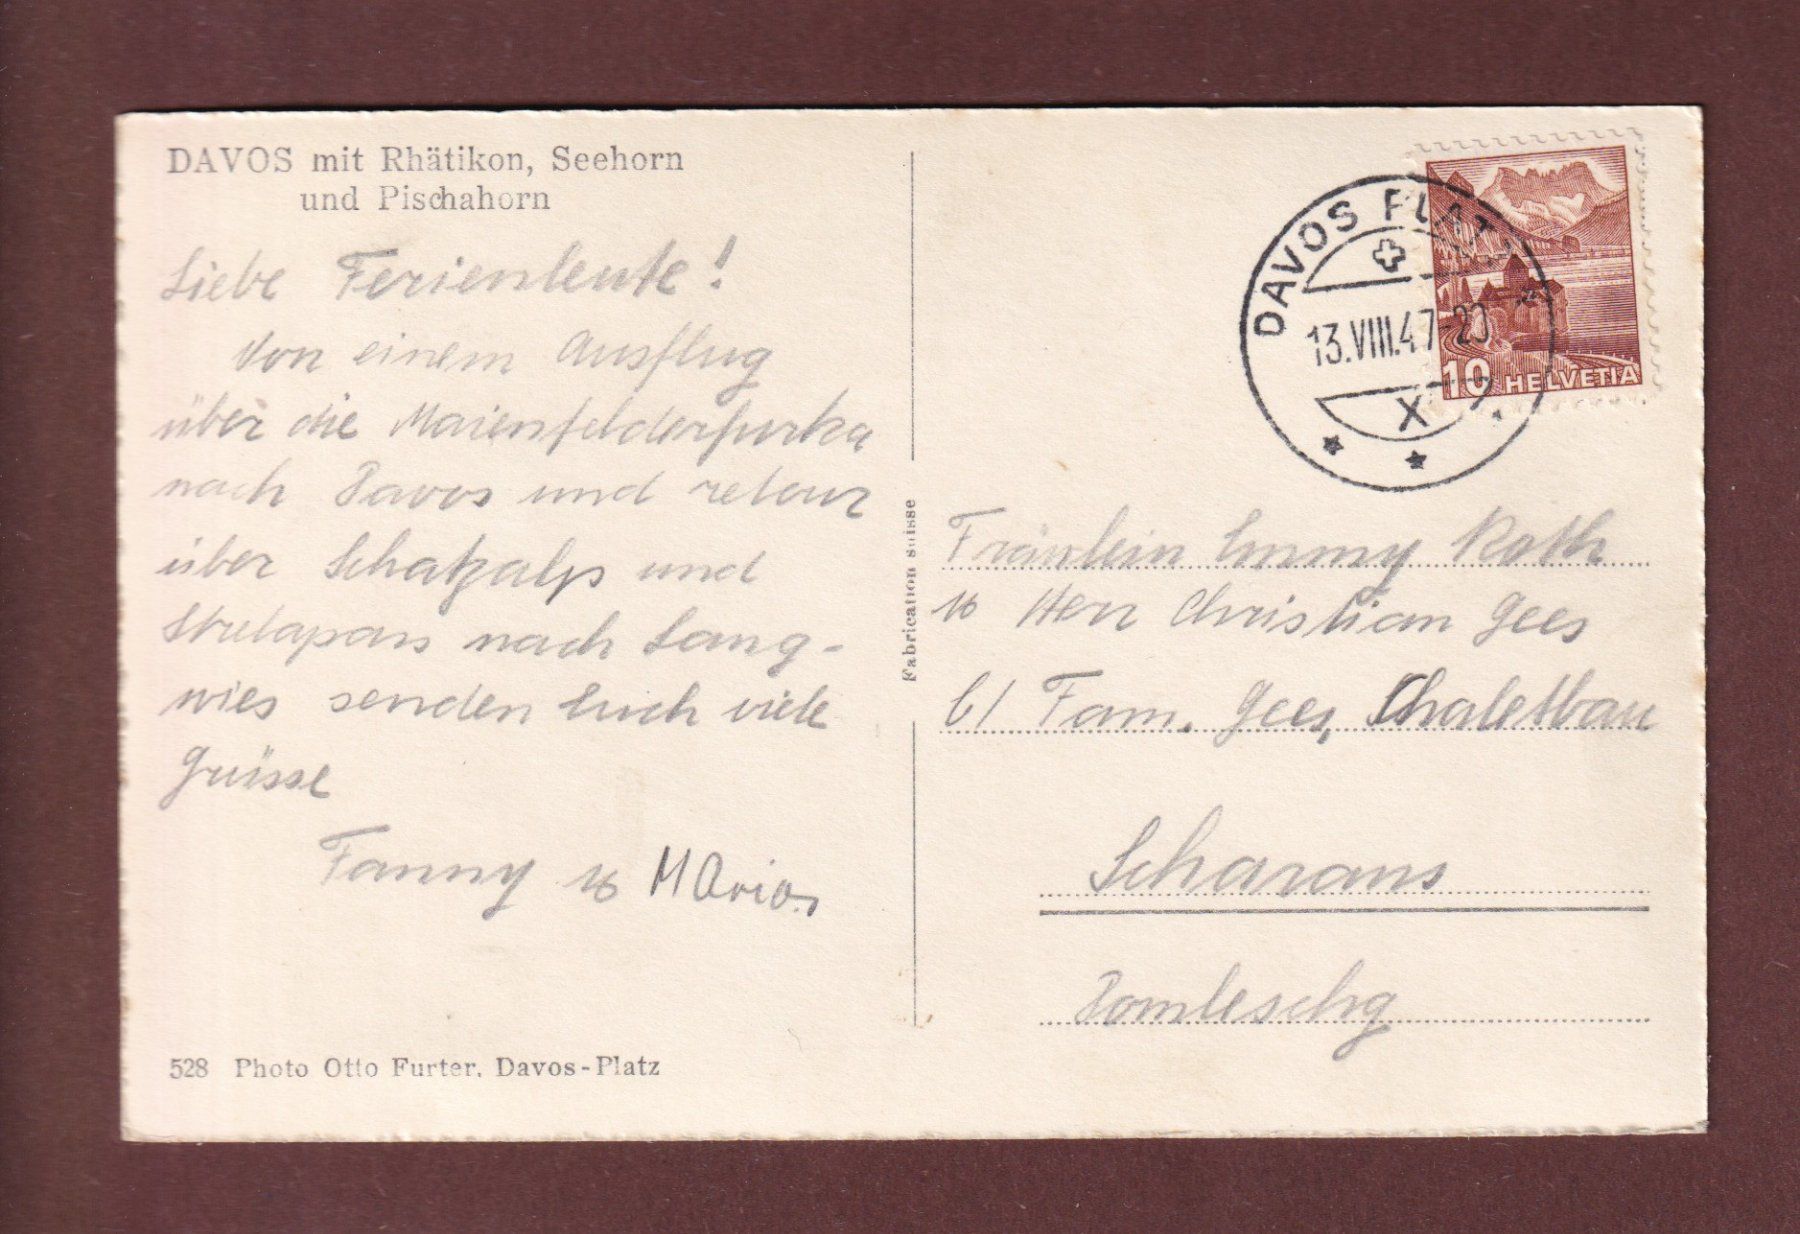 DAVOS mit Rhätikon, Seehorn
und Pischahorn
Liebe Ferienleute!
Von einem Ausflug
über die Maienfelderfurka
nach Davos und retour
über Schatzalp und
Strelapass nach Lang-
wies senden Euch viele
Grüsse
Fanny u MAria
528 Photo Otto Furter, Davos-Platz
Fabrication suisse
DAVOS PLATZ
13.VIII.47-20
X
10 HELVETIA
Fräulein Emmy Roth
u Herr Christian Gees
b/ Fam. Gees, Chaletbau
Scharans
Domleschg